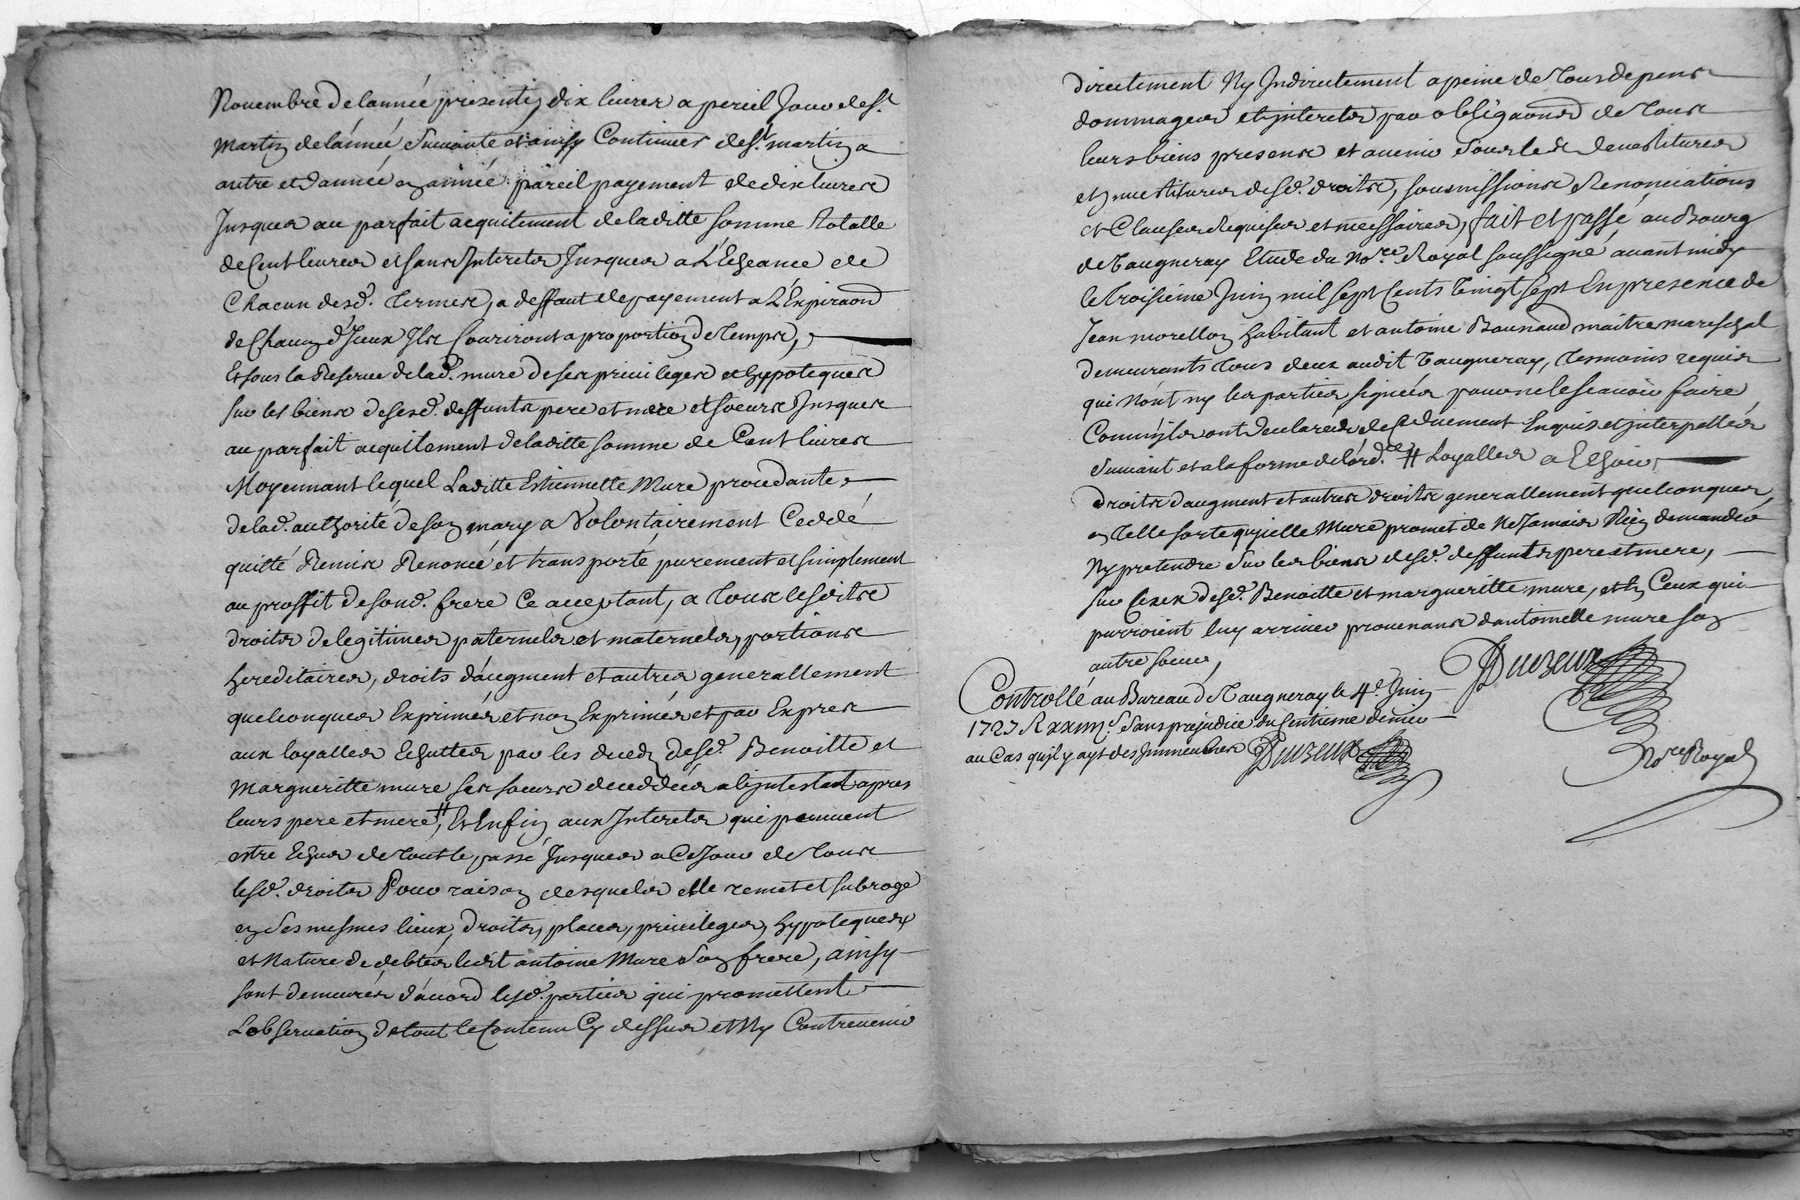 Novembre de lannée presente, dix livres a pareil Jour de st.
Martin de lannée Suivante et ainsy Continuer de st. martin a
autre et dannée en année pareil payement de dix livres
Jusques au parfait acquitement de laditte somme totalle
de Cent livres et sans Interetz Jusques a L'Echeance de
Chacun desd. termes, a deffaut de payement a L'Expiraõn
de Chacun d'Iceux Ilz Couriront a proportion de temps,
Et sous la Reserve de lad. mure de ses privileges et hypoteques
sur les biens de sesd. deffunts pere et mere et soeurs Jusques
au parfait acquitement de laditte somme de Cent livres
Moyennant lequel Laditte Estiennette Mure procedante
de lad. authorité de son mary a Volontairement Ceddé
quitté Remis Renoncé et transporté purement et simplement
au proffit de sond. frere Ce acceptant, a tous lesdits
droits de legitimes paternels et maternels, portions
hereditaires, droits d'augment et autres generallement
quelconques Exprimés et non Exprimés et par Expres
aux loyalles Echuttes par les deceds desd. Benoitte et
Margueritte mure ses soeurs deceddées ab intestat apres
leurs pere et mere,# Et Enfin aux Interetz qui peuvent
estre Echus de tout le passé Jusques a Ce Jour de tous
lesd. droits Pour raison desquels elle remet et subroge
en ses mesmes lieux, droits, places, privileges, hypoteques
et Nature de debtes ledit antoine Mure Son frere, ainsy
sont demeurés d'acord lesd. parties qui promettent
Lobservation de tout le Contenu Cy dessus et Ny Contrevenir
directement Ny Indirectement a peine de tous depens
dommages et interetz par obligaõns de tous
leurs biens presens et avenir sous les devestitures
et investitures desd. droits, soumissions Renonciations
et Clauses Requises et necessaires, fait et passé au Bourg
de Vaugneray Etude du Nore. Royal soussigné avant midy
le troisieme Juin mil sept Cents Vingt sept En presence de
Jean morellon habitant et antoine Bounaud maitre mareschal
demeurants tous deux audit Vaugneray, tesmoins requis
qui N'ont ny les parties signés pour ne le scavoir faire
Comm'ils ont declarés de Ce duement Enquis et interpellés
Suivant et a la forme de l'ord.ce # Loyalles a Echoir,
droits d'augment et autres droits generallement quelconques,
en telle sorte qu'ielle Mure promet de Ne Jamais Rien demander
Ny pretendre Sur les biens desd. deffunts pere et mere,
sur Ceux desd. Benoitte et margueritte mure, et En Ceux qui
pourroient luy arriver provenans dantoinette mure son
autre soeur,
Controllé au Bureau de Vaugneray le 4e. Juin
1727 R xxiiijs. Sans prejudice du Centieme denier
au Cas qu'il y ayt des Immeubles
Nore. Royal